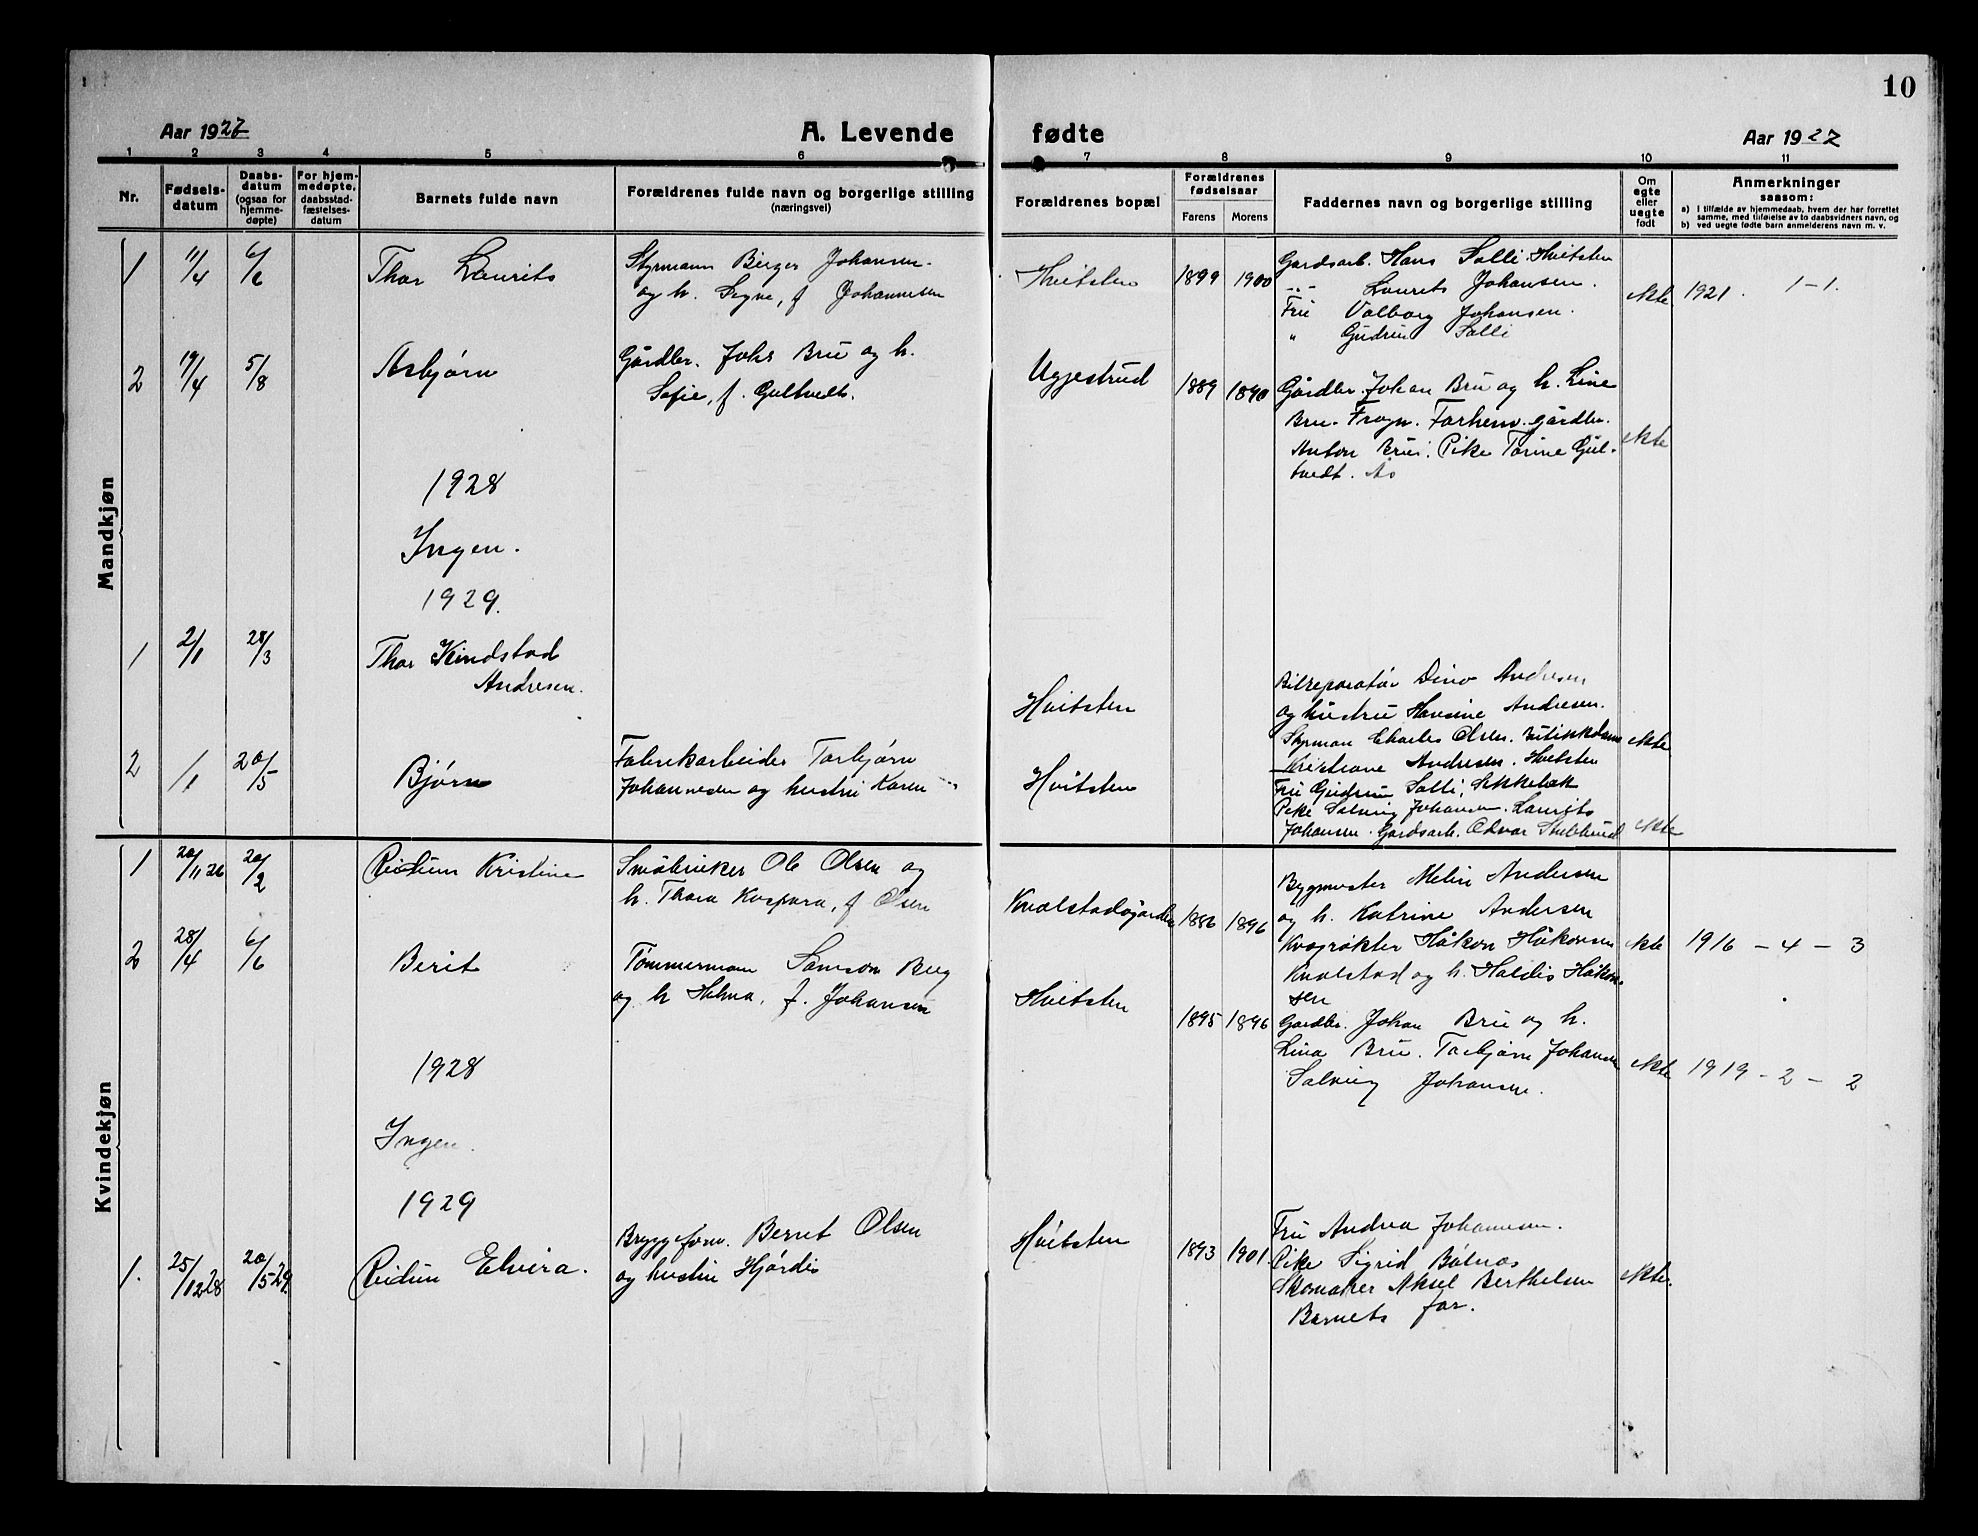 10
Aar 1927
A. Levende fødte
Aar 1927
1 2 3 4 5 6 7 8 9 10 11
Nr.
Fødsels-
datum
Daabs-
datum
(ogsaa for
hjemme-
døpte)
For hjem-
medøpte,
daabsstad-
fæstelses-
datum
Barnets fulde navn
Forældrenes fulde navn og borgerlige stilling
(næringsvei)
Forældrenes bopæl
Forældrenes
fødselsaar
Farens
Morens
Faddernes navn og borgerlige stilling
Om
egte
eller
uegte
født
Anmerkninger
saasom:
a) I tilfælde av hjemmedaab, hvem der har forrettet
samme, med tilføielse av to daabsvidners navn, og
b) ved uegte fødte barn anmelderens navn m. v.
Mandkjøn
1 11/4 6/6 Thor Laurits
Styrmann Birger Johansen
og h. Signe, f Johannesen
Hvitsten 1899 1900
Gardsarb. Hans Solli. Hvitsten
-"- Laurits Johansen.
Fru Valborg Johansen.
" Gudrun Solli
ekte 1921. 1-1.
2 19/4 5/8 Asbjørn
Gårdbr. Johs Bru og h.
Sofie, f. Gultvedt.
Uggestrud 1889 1890
Gårdbr. Johan Bru og h. Line
Bru. Frogn. Forhenv. gårdbr.
Anton Bru. Pike Torine Gul-
tvedt. Ås
ekte
1928
Ingen.
1929.
1 2/1 28/3 Thor Kindstad
Andresen.
Hvitsten
Bilreparatør Dino Andresen
og hustru Hansine Andresen.
Styrman Charles Olsen.
Kristiane Andresen. Hvitsten
ekte
2 1/1 20/5 Bjørn
Fabrikarbeider Torbjørn
Johannesen og hustru Karen
Hvitsten
Fru Gudrun Solli,
Pike Solveig Johansen. Laurits
Johansen. Gardsarb. Odvar Stubberud
ekte
Kvindekjøn
1 20/11 26 20/2 Reidun Kristine
Småbruker Ole Olsen og
h. Thora Kaspara, f Olsen
Knalstadgarden 1886 1896
Byggmester Melin Andersen
og h. Katrine Andersen
Kvegrøkter Håkon Håkonsen
Knalstad og h. Haldis Håkon-
sen
ekte 1916 - 4 - 3
2 28/4 6/6 Berit
Tømmermann Samson Berg
og h Helma, f. Johansen
Hvitsten 1895 1896
Gardbr. Johan Bru og h.
Lina Bru. Torbjørn Johansen
Solveig Johansen.
ekte 1919 - 2 - 2
1928
Ingen.
1929
1. 25/12 28 20/5 29. Reidun Elvira.
Bryggeform. Bernt Olsen
og hustru Hjørdis
Hvitsten 1893 1901.
Fru Andrea Johannesen.
Pike Sigrid Bølnes
Skomaker Aksel Berthelsen
Barnets far.
ekte.